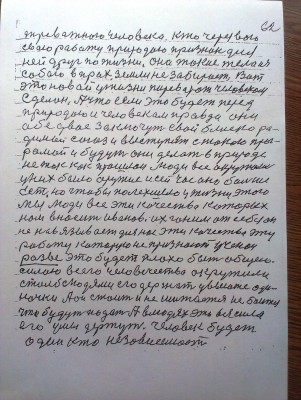 62
тревожного человека. Кто через его
свою работу природою признак дня
ней друг по жизни. она такие тела и
собою в прах земли не забирает. Вот
это новой у жизни переворот человеком
сделан, А что если это будет перед
природою и человекам правда они
обе двое заключут свой близко ро-
димой союз и выступят с такою прог-
рамой и будут они делать в природе
не так как прошлом люди все вооружены
у них было оружие и сейчас оно было и
есть, но чтобы полегчало у жизни этого
Мы люди все эти качества которых
нам вносит Иванов. их гоним от себя он
не навязывает для нас эти качества эту
работу которую не признают ученой
разве это будет плохо быть общею
силою всего человечества окружили
стали людями его держат у вышете оди-
ночки А он стоит и не шитается не болтки
что будут подат А в людях это выясила
его умы держут. Человек будет
один кто независимост